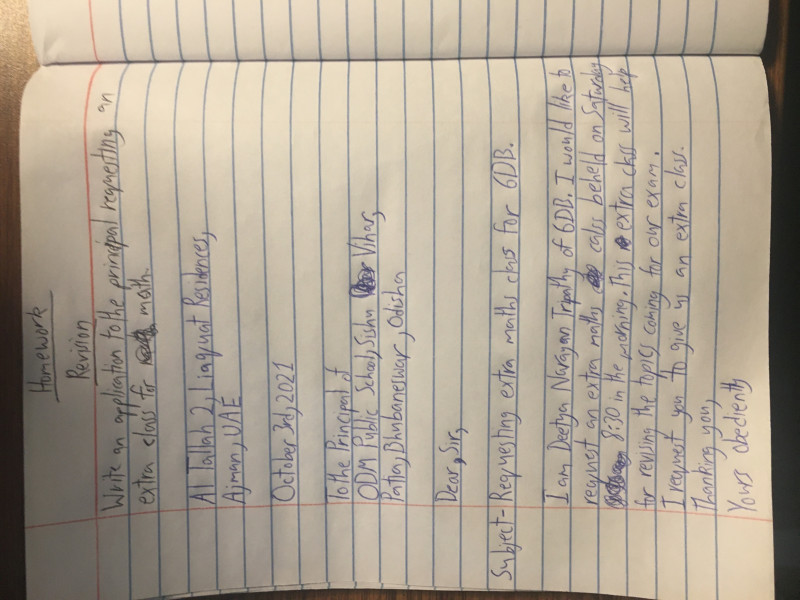 Homework
Revision
Write an application to the principal requesting an
extra class for math.
Al Tallah 2, Liaquat Residences,
Ajman, UAE
October 3rd, 2021
To the Principal of
ODM Public School, Sishu Vihar,
Patia, Bhubaneswar, Odisha
Dear, Sir,
Subject- Requesting extra maths class for 6DB.
I am Deetya Narayan Tripathy of 6DB. I would like to
request an extra maths calss beheld on Saturday
8:30 in the morning. This extra class will help
for revising the topics coming for our exam.
I request you to give us an extra class.
Thanking you,
Yours Obediently